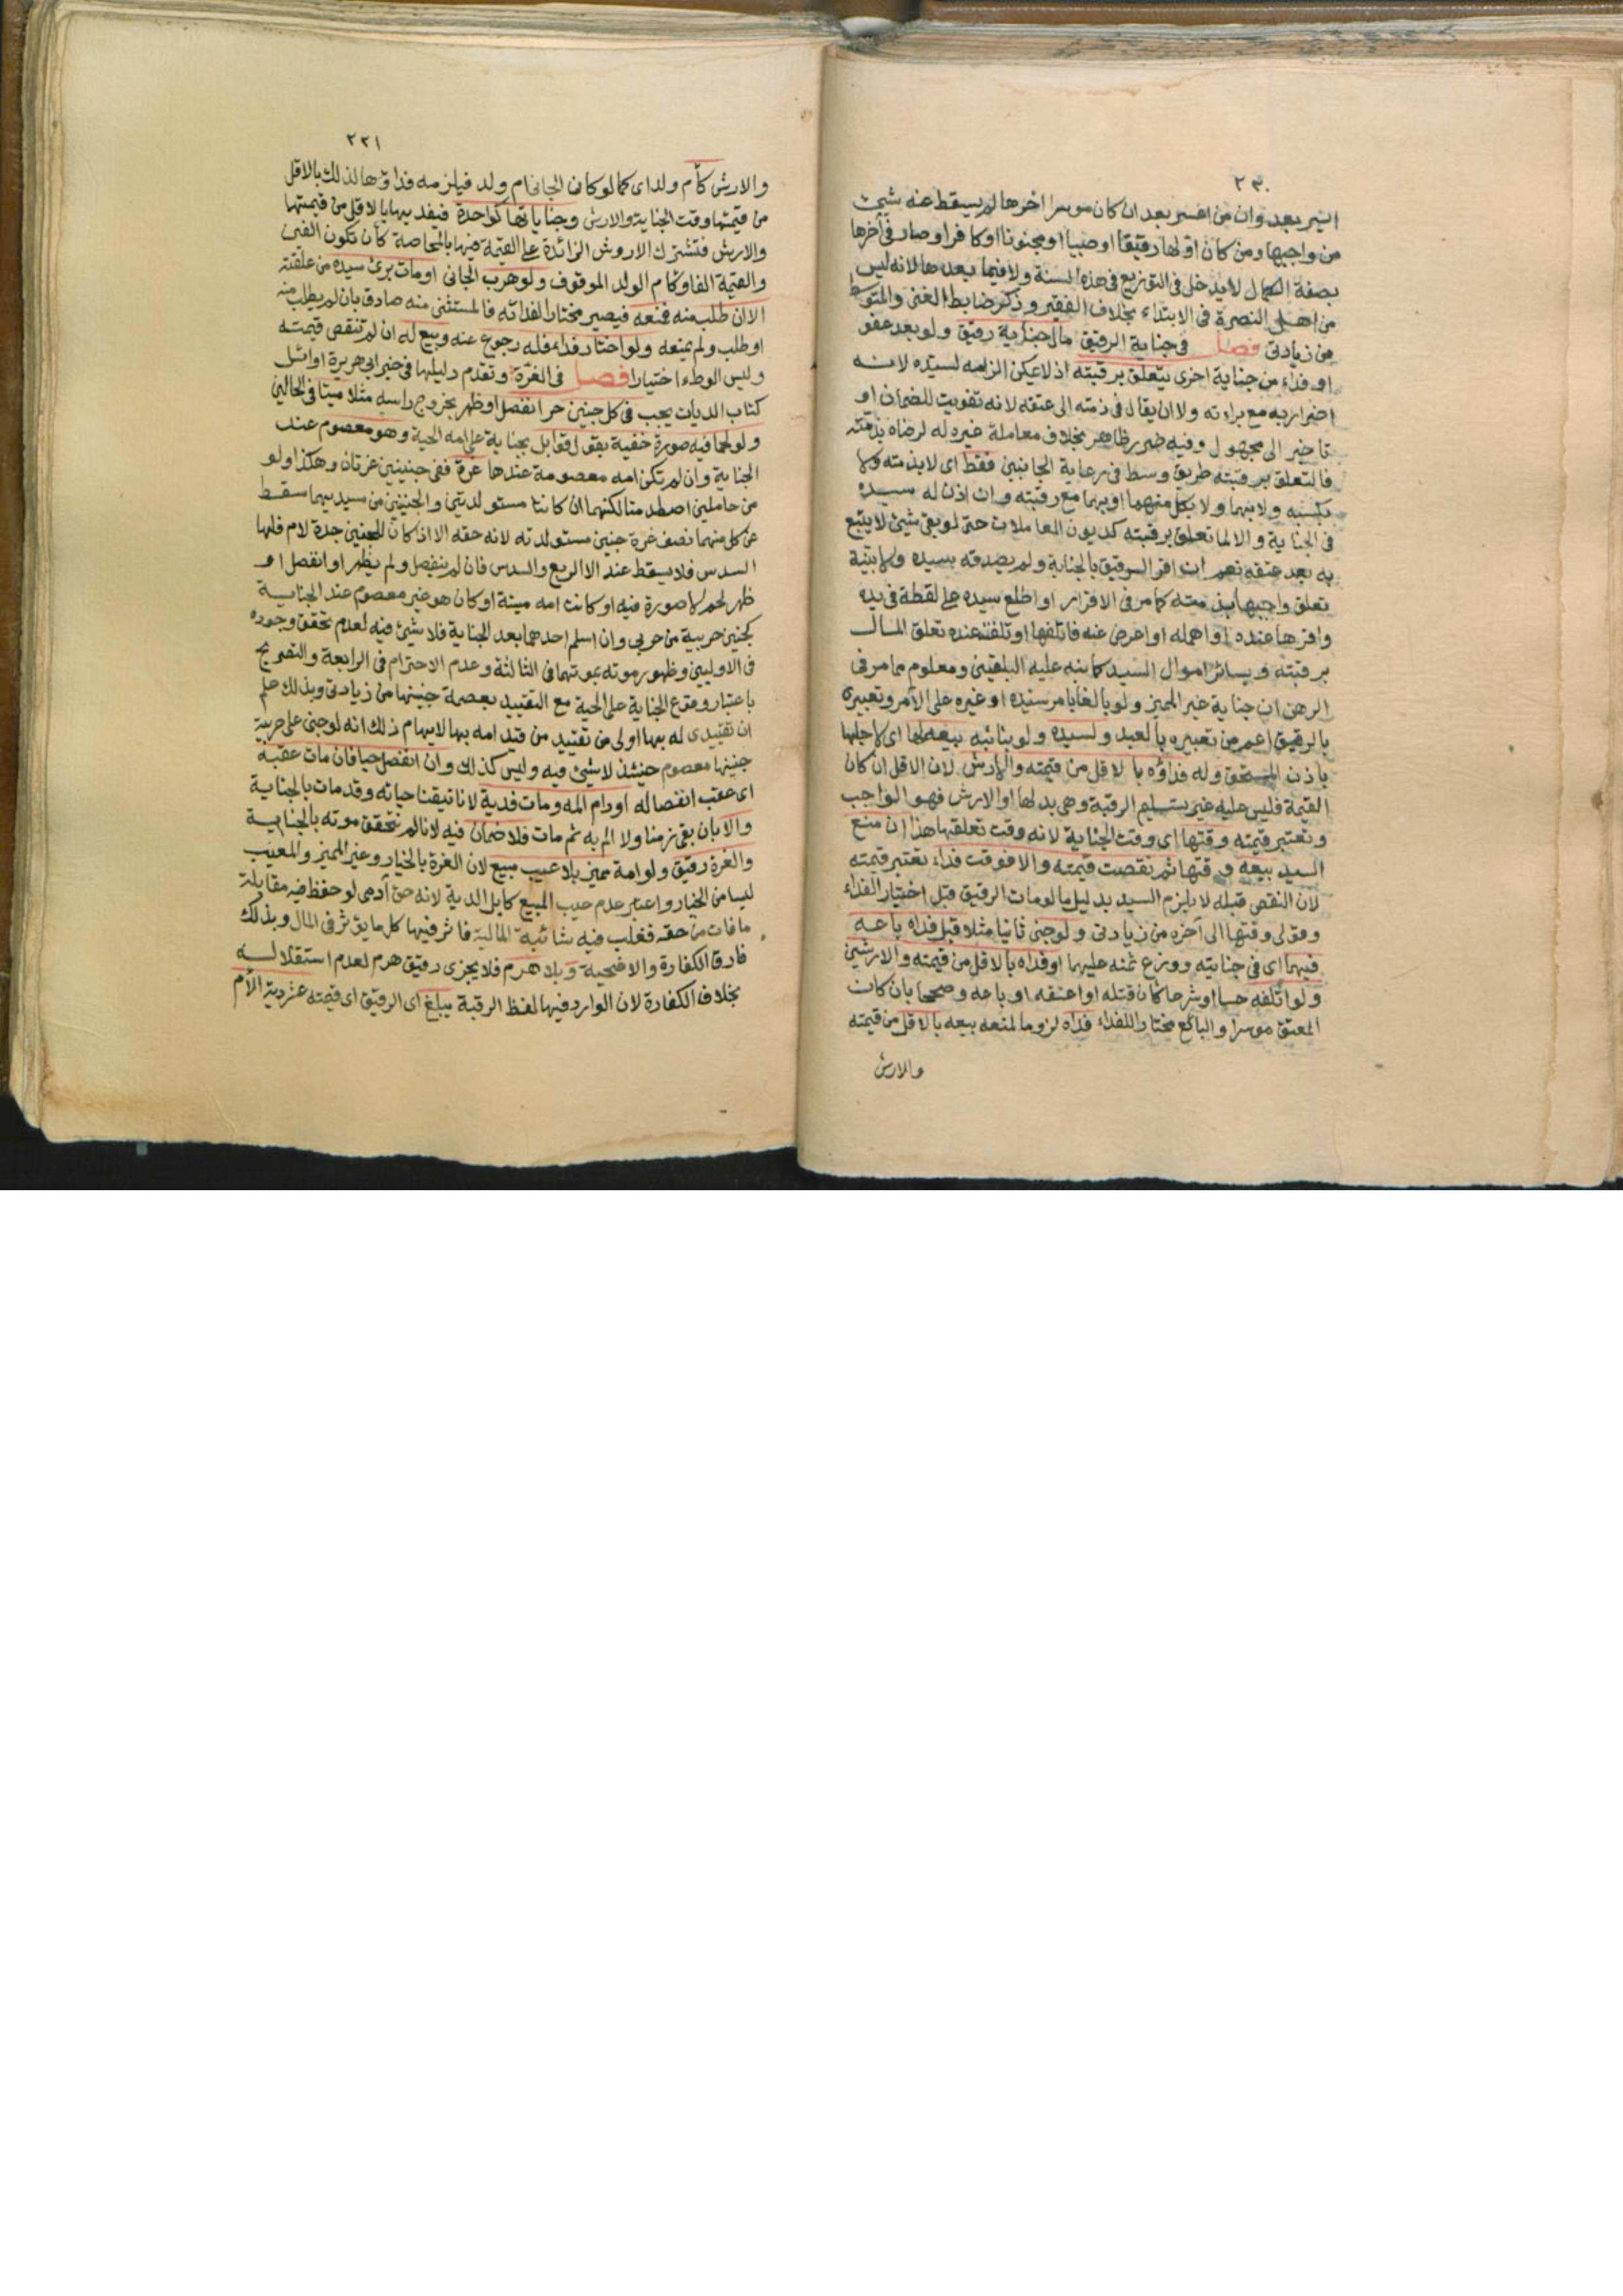 ٢٣٠
اليسر بعد وان من اعسر بعد ان كان موسرا اخرها لم يسقط عنه شيئ
من واجبها ومن كان اولها رقيقا او صبيا او مجنونا او كافرا وصار في آخرها
بصفة الكمال لا يدخل في التوزيع في هذه السنة ولا فيما بعدها لانه ليس
من اهل النصرة في الابتداء بخلاف الفقير وذكر ضابط الغنى والمتوسط
من زيادتى فصل في جناية الرقيق مال جناية رقيق ولو بعد عفو
او فداء من جناية اخرى يتعلق برقبته اذ لا يمكن الزامه لسيده لانه
اضرار به مع براءته ولا ان يقال في ذمته الى عتقه لانه تفويت للضمان او
تاخير الى مجهول وفيه ضرر ظاهر بخلاف معاملة غيره له لرضاه بذمته
فالتعلق برقبته طريق وسط في رعاية الجانبين فقط اى لا بذمته ولا
بكسبه ولا بهما ولا بكل منهما او بهما مع رقبته وان اذن له سيده
في الجناية والا لما تعلق برقبته كديون المعاملات حتى لو بقى شيئ لا يتبع
به بعد عتقه نعم ان اقر الرقيق بالجناية ولم يصدقه سيده ولا بينة
تعلق واجبها بذمته كما مر في الاقرار او اطلع سيده على لقطة في يده
واقرها عنده او اهمله او اعرض عنه فاتلفها او تلفت عنده تعلق المال
برقبته وبسائر اموال السيد كما نبه عليه البلقينى ومعلوم مما مر في
الرهن ان جناية غير المميز ولو بالغا بامر سيده او غيره على الآمر وتعبيرى
بالرقيق اعم من تعبيره بالعبد ولسيده ولو بنائبه بيعه لها اى لاجلها
باذن المستحق وله فداؤه بالاقل من قيمته والارش لان الاقل ان كان
القيمة فليس عليه غير تسليم الرقبة وهى بدلها او الارش فهو الواجب
وتعتبر قيمته وقتها اى وقت الجناية لانه وقت تعلقها هذا ان منع
السيد بيعه وقتها ثم نقصت قيمته والا فوقت فداء تعتبر قيمته
لان النقص قبله لا يلزم السيد بدليل ما لو مات الرقيق قبل اختيار الفداء
وقولى وقتها الى آخره من زيادتى ولو جنى ثانيا مثلا قبل فداه باعه
فيهما اى في جنايتيه ووزع ثمنه عليهما او فداه بالاقل من قيمته والارشين
ولو اتلفه حسا او شرعا كان قتله او اعتقه او باعه وصححا بان كان
المعتق موسرا والبائع مختارا للفداء فداه لزوما لمنعه بيعه بالاقل من قيمته
والارش
٢٣١
والارش كأم ولد اى كما لو كان الجانى ام ولد فيلزمه فداؤها لذلك بالاقل
من قيمتها وقت الجناية والارش وجناياتها كواحدة فيفديها بالاقل من قيمتها
والارش فتشترك الاروش الزائدة على القيمة فيها بالمحاصة كأن تكون الفين
والقيمة الفا وكام الولد الموقوف ولو هرب الجانى او مات برئ سيده من علقته
الا ان طلب منه فمنعه فيصير مختارا لفدائه فالمستثنى منه صادق بان لم يطلب منه
او طلب ولم يمنعه ولو اختار فداء فله رجوع عنه وبيع له ان لم تنقص قيمته
وليس الوطء اختيارا فصل في الغرة وتقدم دليلها في خبر ابى هريرة اوائل
كتاب الديات يجب في كل جنين حر انفصل او ظهر بخروج راسه مثلا ميتا في الحالين
ولو لحما فيه صورة خفية بقول قوابل بجناية على امه الحية وهو معصوم عند
الجناية وان لم تكن امه معصومة عندها غرة ففى جنينين غرتان وهكذا ولو
من حاملين اصطدمتا لكنهما ان كانتا مستولدتين والجنينين من سيديهما سقط
عن كل منهما نصف غرة جنين مستولدته لانه حقه الا اذا كان للجنين جدة لام فلها
السدس فلا يسقط عند الا الربع والسدس فان لم ينفصل ولم يظهر او انفصل او
ظهر لحم لا صورة فيه او كانت امه ميتة او كان هو غير معصوم عند الجناية
كجنين حربية من حربى وان اسلم احدهما بعد الجناية فلا شيئ فيه لعدم تحقق وجوده
في الاوليين وظهور موته بموتها في الثالثة وعدم الاحترام في الرابعة والتصريح
باعتبار وقوع الجناية على الحية مع التقييد بعصمة جنينها من زيادتى وبذلك علم
ان تقييدى له بها اولى من تقييد من قيد امه بها لايهام ذلك انه لو جنى على حربية
جنينها معصوم حينئذ لا شيئ فيه وليس كذلك وان انفصل حيا فان مات عقبه
اى عقب انفصاله او دام المه ومات فدية لانا تيقنا حياته وقد مات بالجناية
والا بان بقى زمنا ولا الم به ثم مات فلا ضمان فيه لانا لم نتحقق موته بالجناية
والغرة رقيق ولو امة مميز بلا عيب مبيع لان الغرة بالخيار وغير المميز والمعيب
ليسا من الخيار واعتبر عدم عيب المبيع كابل الدية لانه حق آدمى لوحظ فيه مقابلة
ما فات من حقه فغلب فيه شائبة المالية فاثر فيها كل ما يؤثر في المال وبذلك
فارق الكفارة والاضحية وبلا هرم فلا يجزى رقيق هرم لعدم استقلاله
بخلاف الكفارة لان الوارد فيها لفظ الرقبة يبلغ اى الرقيق اى قيمته عشر دية الأم